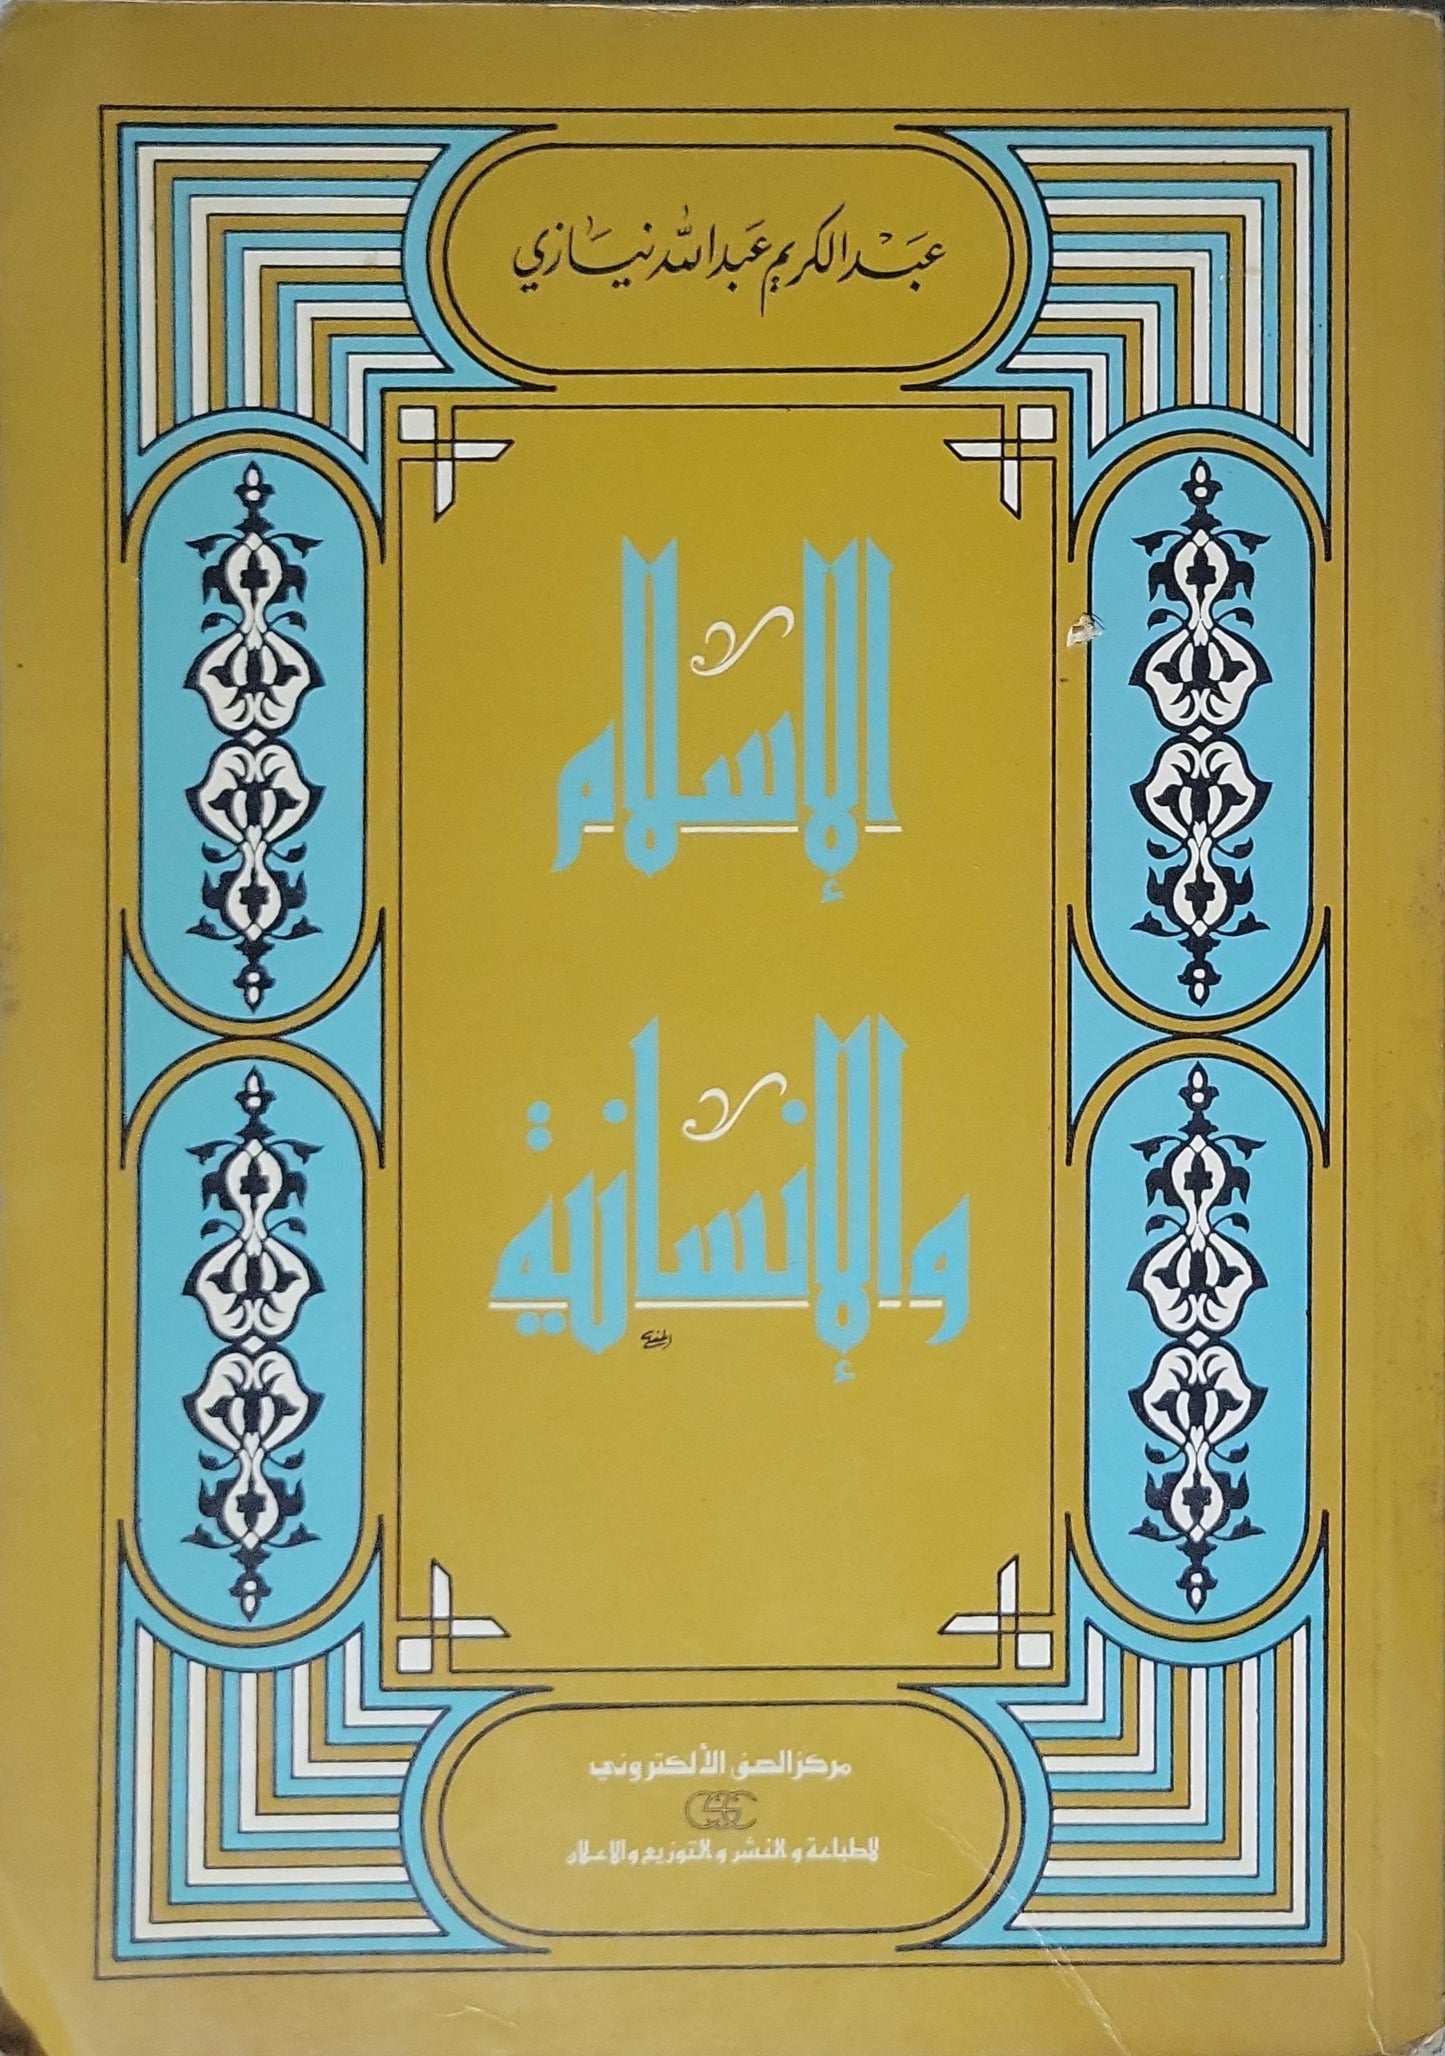 عبد الكريم عبد الله نيازي
الإسلام
والإنسانية
مركز الصف الألكتروني
للطباعة والنشر والتوزيع والاعلان